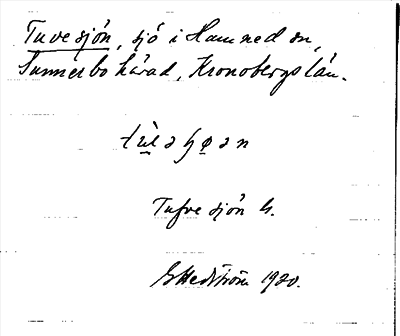 Tuvesjön, sjö i Hamneda sn,
Sunnerbo härad, Kronobergs län.
Tufvesjön G.
G Hedström 1920.